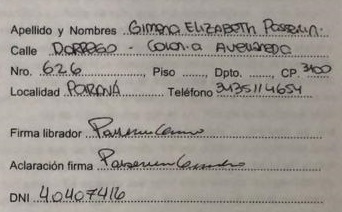 Apellido y Nombres Gimena Elizabeth Passerin.
Calle DORREGO - Colonia Avellaneda
Nro. 626, Piso ......, Dpto. ......, CP. 3100
Localidad PARANÁ Teléfono 3435114654
Firma librador
Aclaración firma
DNI 40407416